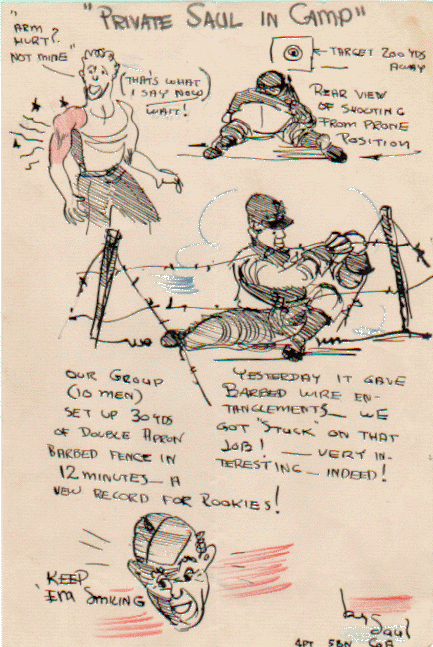 "PRIVATE SAUL IN CAMP"
"ARM
HURT?
NOT MINE"
(THAT'S WHAT
I SAY NOW
WAIT!)
TARGET 200 YDS
AWAY
REAR VIEW
OF SHOOTING
FROM PRONE
POSITION
OUR GROUP
(10 MEN)
SET UP 30 YDS
OF DOUBLE APRON
BARBED FENCE IN
12 MINUTES — A
NEW RECORD FOR ROOKIES!
YESTERDAY IT GAVE
BARBED WIRE EN-
TANGLEMENTS — WE
GOT "STUCK" ON THAT
JOB! — VERY IN-
TERESTING — INDEED!
KEEP
'EM SMILING
by Saul
4PT 5BN CoB